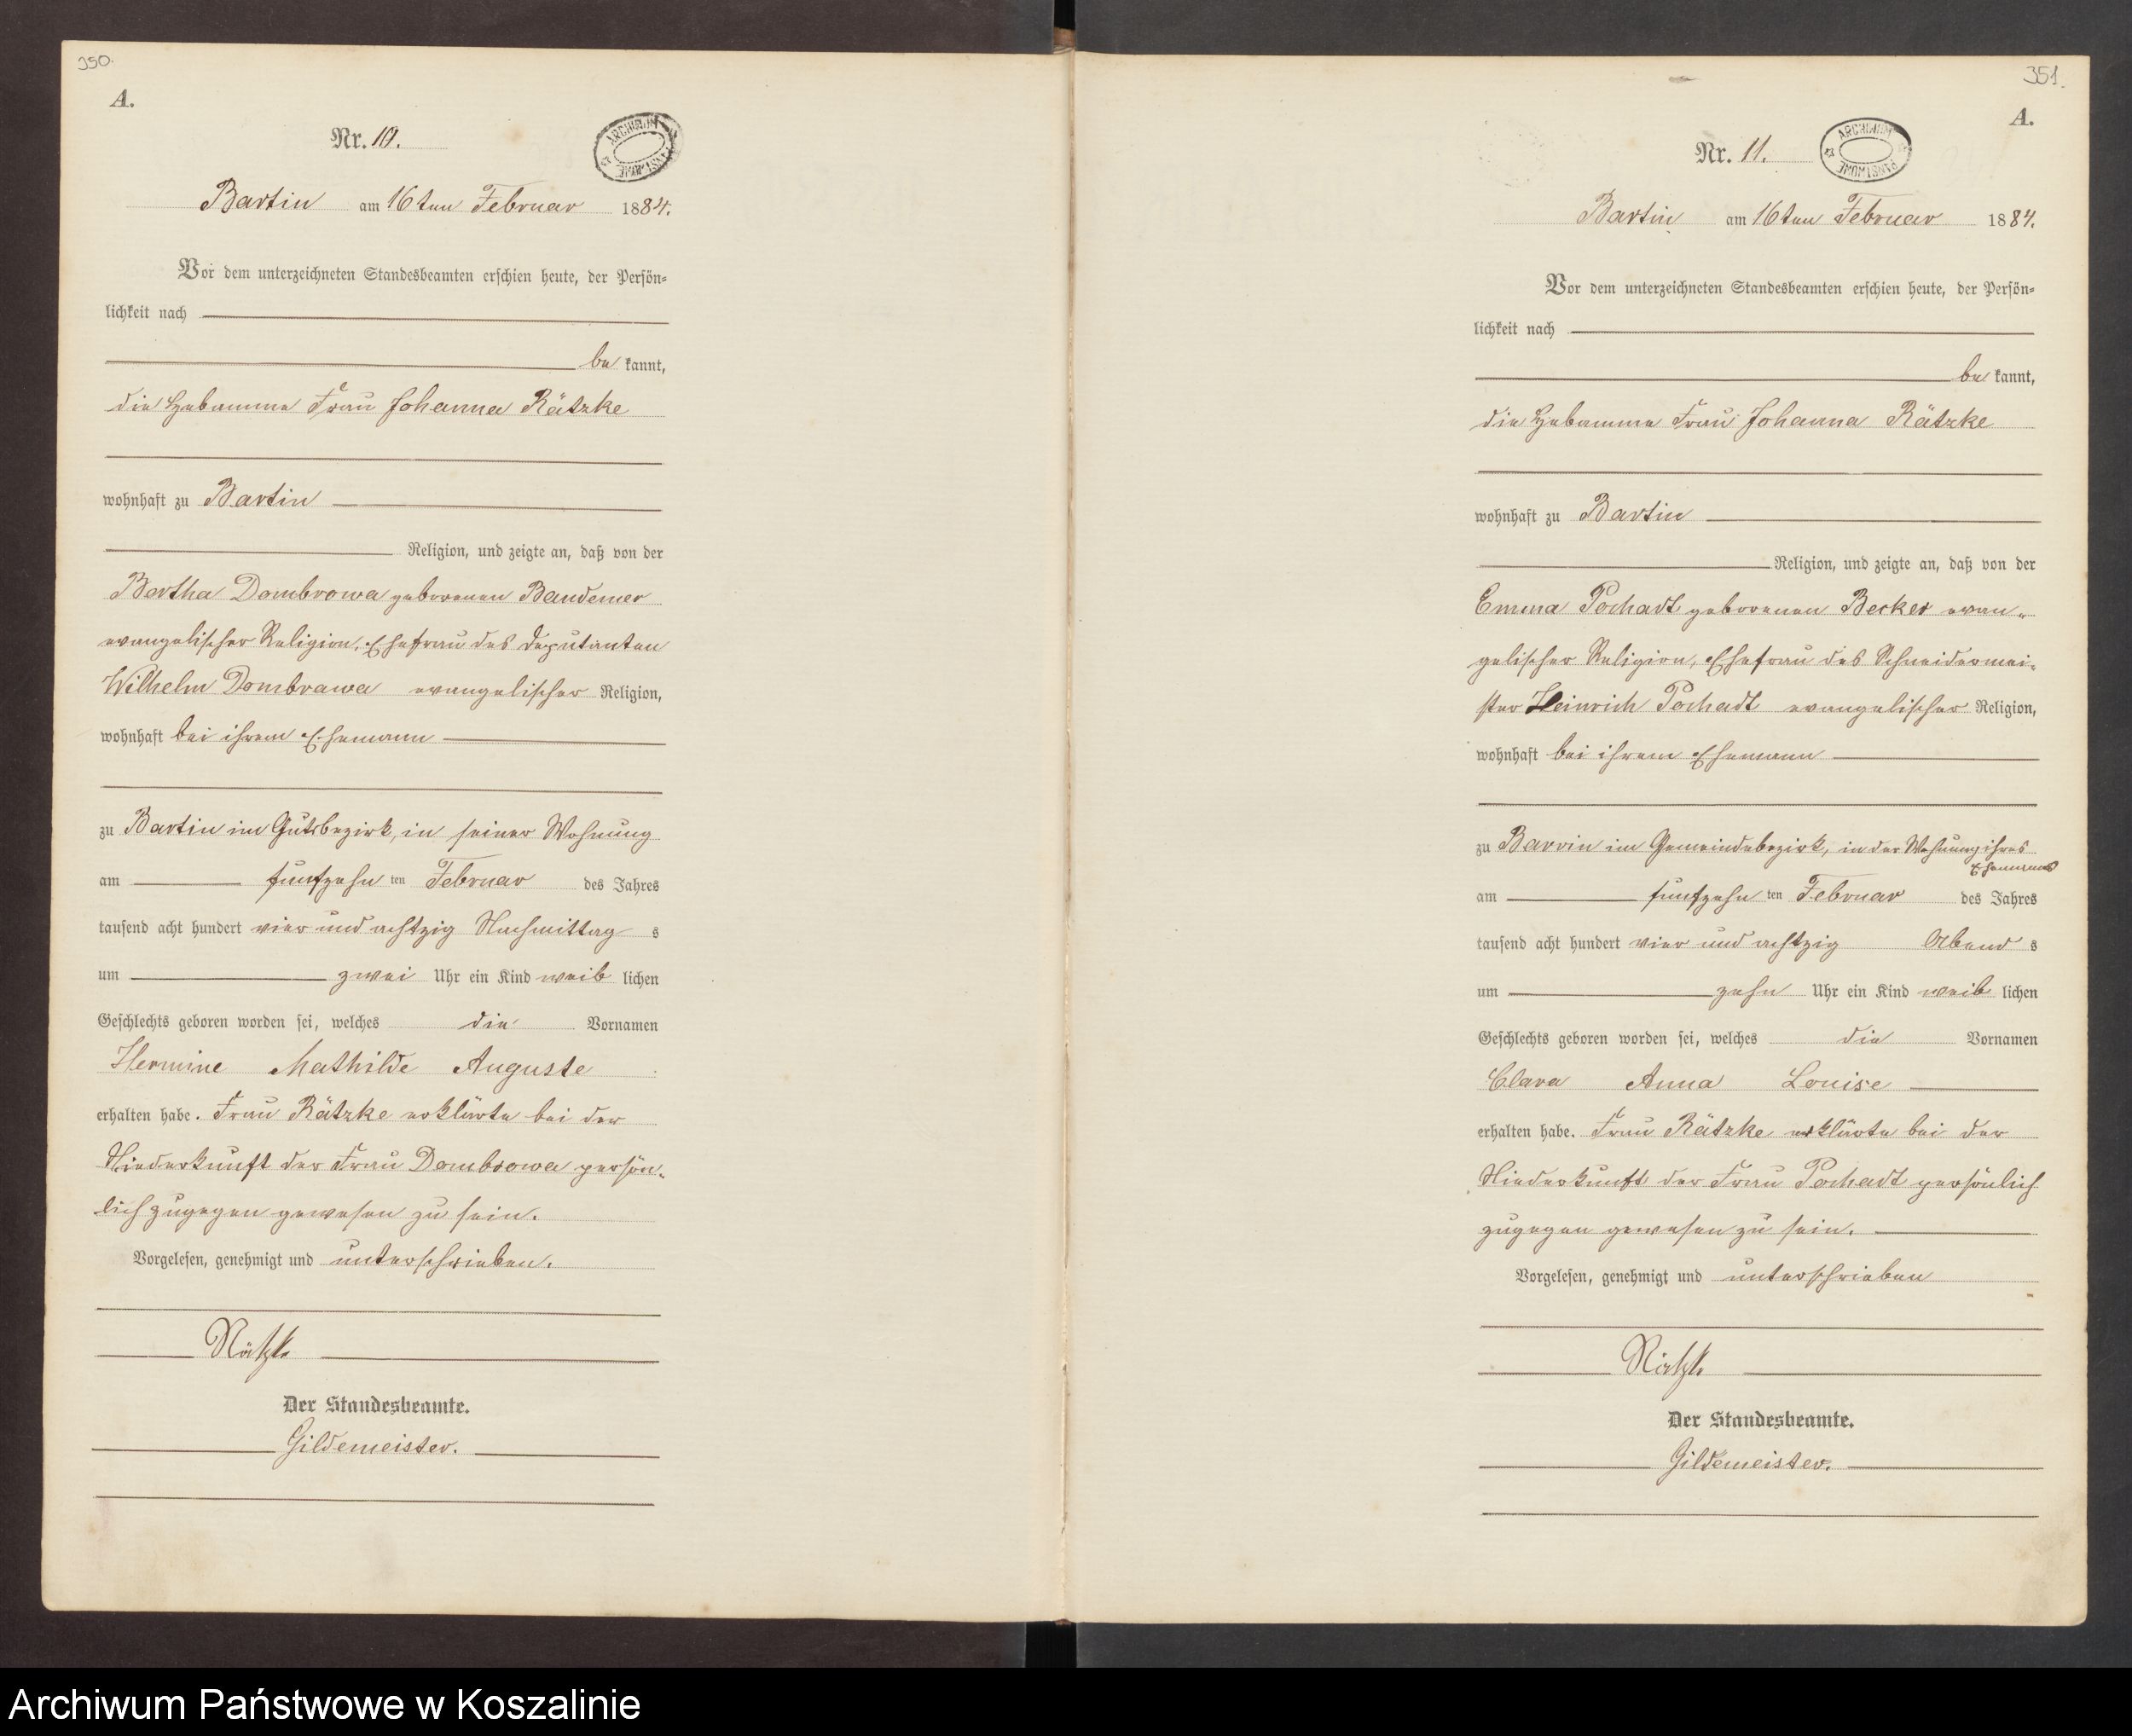 350.
A.
Nr. 10.
ARCHIWUM PAŃSTWOWE
Bartin am 16ten Februar 1884.
Vor dem unterzeichneten Standesbeamten erschien heute, der Persön-
lichkeit nach
be kannt,
die Hebamme Frau Johanna Rätzke
wohnhaft zu Bartin
Religion, und zeigte an, daß von der
Bertha Dombrowa geborenen Bandemer
evangelischer Religion, Ehefrau des Deputanten
Wilhelm Dombrowa evangelischer Religion,
wohnhaft bei ihrem Ehemann
zu Bartin im Gutsbezirk, in seiner Wohnung
am fünfzehn ten Februar des Jahres
tausend acht hundert vier und achtzig Nachmittag s
um zwei Uhr ein Kind weib lichen
Geschlechts geboren worden sei, welches die Vornamen
Hermine Mathilde Auguste
erhalten habe. Frau Rätzke erklärte bei der
Niederkunft der Frau Dombrowa persön-
lich zugegen gewesen zu sein.
Vorgelesen, genehmigt und unterschrieben.
Rätzke
Der Standesbeamte.
Gildemeister.
351.
A.
Nr. 11.
ARCHIWUM PAŃSTWOWE
Bartin am 16ten Februar 1884.
Vor dem unterzeichneten Standesbeamten erschien heute, der Persön-
lichkeit nach
be kannt,
die Hebamme Frau Johanna Rätzke
wohnhaft zu Bartin
Religion, und zeigte an, daß von der
Emma Pochadt geborenen Becker evan-
gelischer Religion, Ehefrau des Schneidermei-
ster Heinrich Pochadt evangelischer Religion,
wohnhaft bei ihrem Ehemann
zu Barvin im Gemeindebezirk, in der Wohnung ihres
Ehemannes
am fünfzehn ten Februar des Jahres
tausend acht hundert vier und achtzig Abend s
um zehn Uhr ein Kind weib lichen
Geschlechts geboren worden sei, welches die Vornamen
Clara Anna Louise
erhalten habe. Frau Rätzke erklärte bei der
Niederkunft der Frau Pochadt persönlich
zugegen gewesen zu sein.
Vorgelesen, genehmigt und unterschrieben
Rätzke
Der Standesbeamte.
Gildemeister.
Archiwum Państwowe w Koszalinie